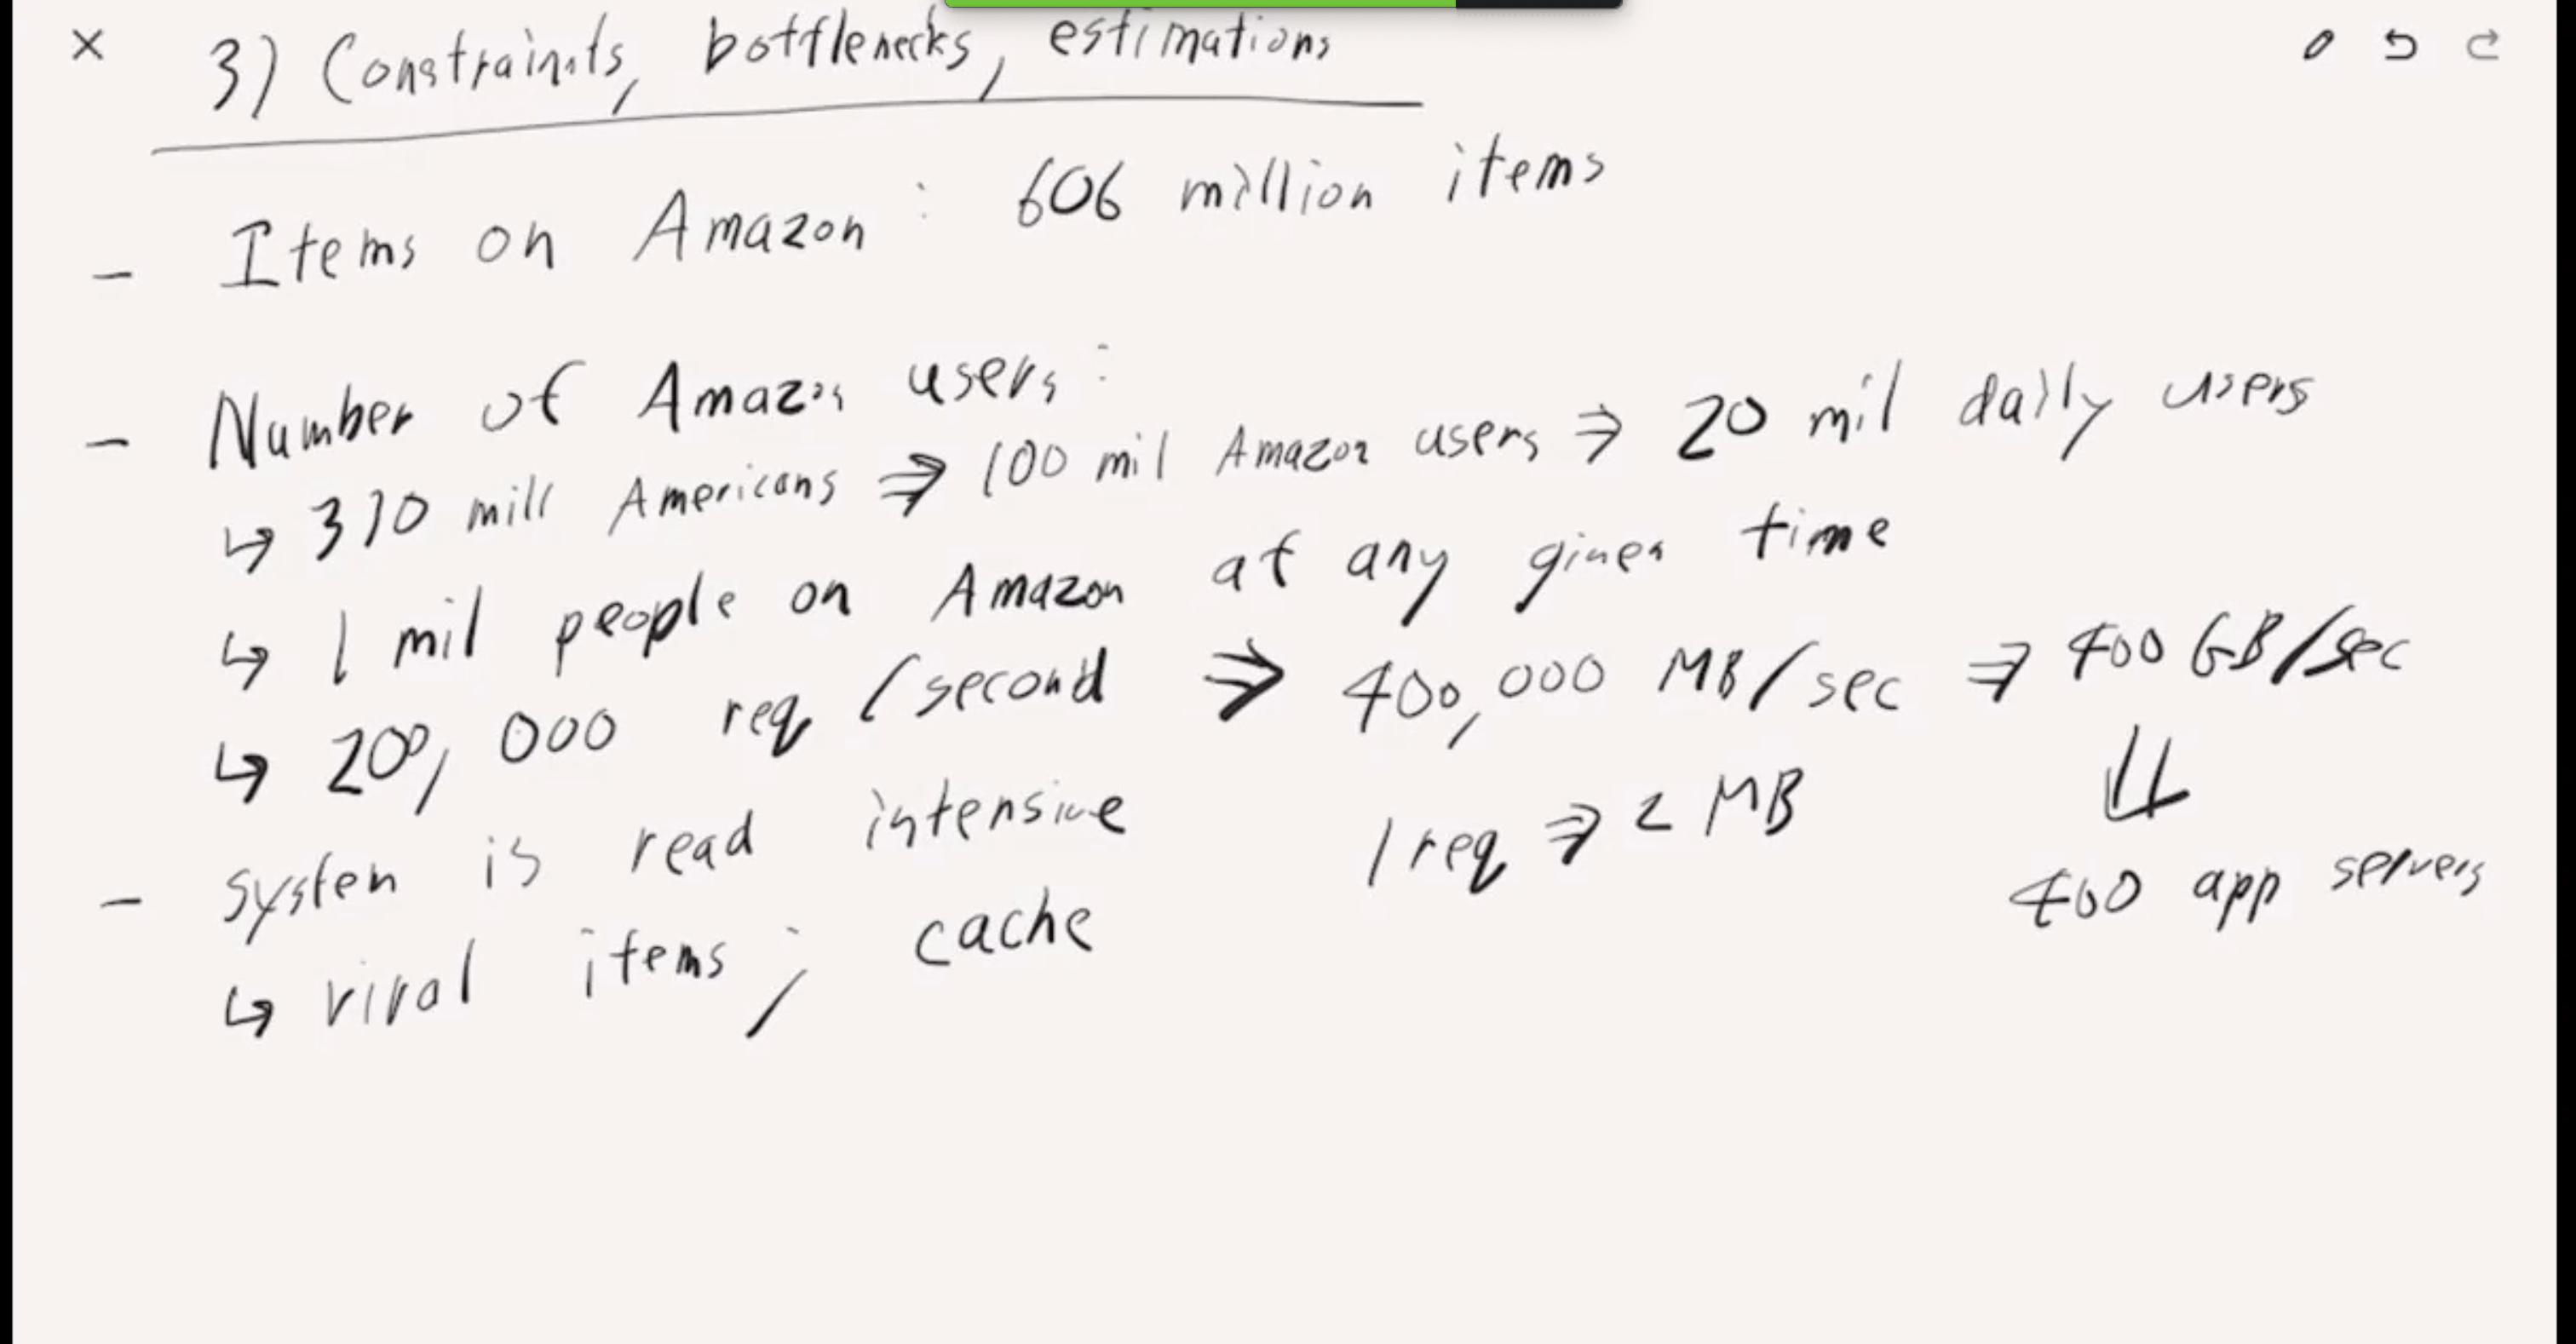 3) Constraints, bottlenecks, estimations
- Items on Amazon : 606 million items
- Number of Amazon users :
↳ 310 mill Americans ⇒ 100 mil Amazon users ⇒ 20 mil daily users
↳ 1 mil people on Amazon at any given time
↳ 200,000 req/second ⇒ 400,000 MB/sec ⇒ 400 GB/sec
1 req ⇒ 2 MB
⇓
400 app servers
- system is read intensive
↳ viral items; cache